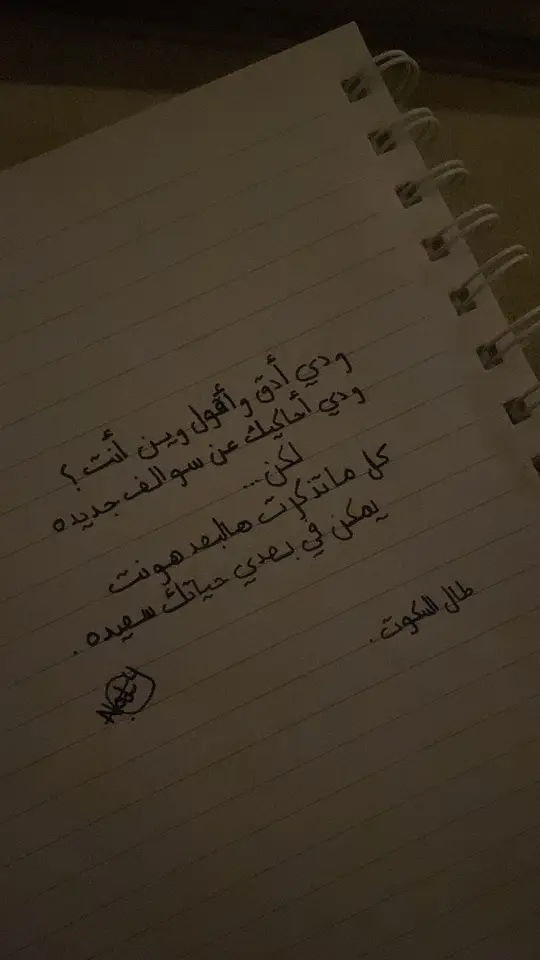 ودي أدق وأقول وين أنت؟
ودي أحاكيك عن سوالف جديده
لكن...
كل ما تذكرت هالبعد هونت
يمكن في بعدي حياتك سعيده.
طال السكوت.